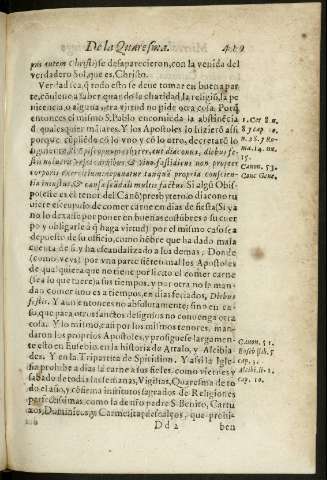 De la Quaresma. 419
pus autem Christi) se desaparecieron, con la venida del
verdadero Sol, que es Christo.
Verdad es, q̃ todo esto se deue tomar en buena par
te, cõuiene a saber quando la charidad, la religiõ, la pe
nitencia, o alguna otra virtud no pide otra cosa. Porq̃
entonces el mismo S. Pablo encomiẽda la abstinẽcia
d qualesquier mãjares. Y los Apostoles lo hizierõ assi
porque cũpliẽdo cõ lo vno, y cõ lo otro, decretarõ lo
siguiente. diaconus, diebus fe-
stis carnibus & vino non propter
corporis propria conscien-
tia & causa multis factus Si algũ Obis
po este es el tenor del Canõ) presbytero o diacono tu
uiere escrupulo de comer carne en dias de fiesta (Si ya
no lo dexasse por poner en buenas costũbres a su cuer
po y obligarle a q̃ haga virtud) por el mismo caso sea
depuesto de su officio, como hõbre que ha dado mala
cuenta de si, y ha escãdalizado a los demas. Donde
(como veys) por vna parte siẽten mal los Apostoles
de qualquiera que no tiene por licito el comer carne
(sea lo que fuere) a sus tiempos, y por otra no lo man
dan comer uno es a tiempos, en dias feriados, Diebus
festis. Y aun entonces no absolutamente; sino en ca-
so, que para otros sanctos designos no conuenga otra
cosa. Y lo mismo, casi por los mismos tenores, man-
daron los proprios Apostoles, y prosiguese largamen-
te esto en Eusebio, en la historia de Attalo, y Alcibia-
des. Y en la Tripartita de Spiridion. Y assi la Igle-
sia prohibe a dias la carne a sus fieles, como viernes y
sabado de todas las semanas, Vigilias, Quaresma de to
do el año, y cõfirma institutos sagrados de Religiones
perfectissimas, como la de nr̃o padre S. Benito, Cartu
xos, Dominicos, y Carmelitas descalços, que prohi-
Dd 2 ben
1. Cor 8 n.
8 y cap 10.
n. 28. y Ro-
ma. 14. nu.
15.
Canon. 53.
Canon. 51.
Euseb lib. 5
cap. 3.
cap. 10.